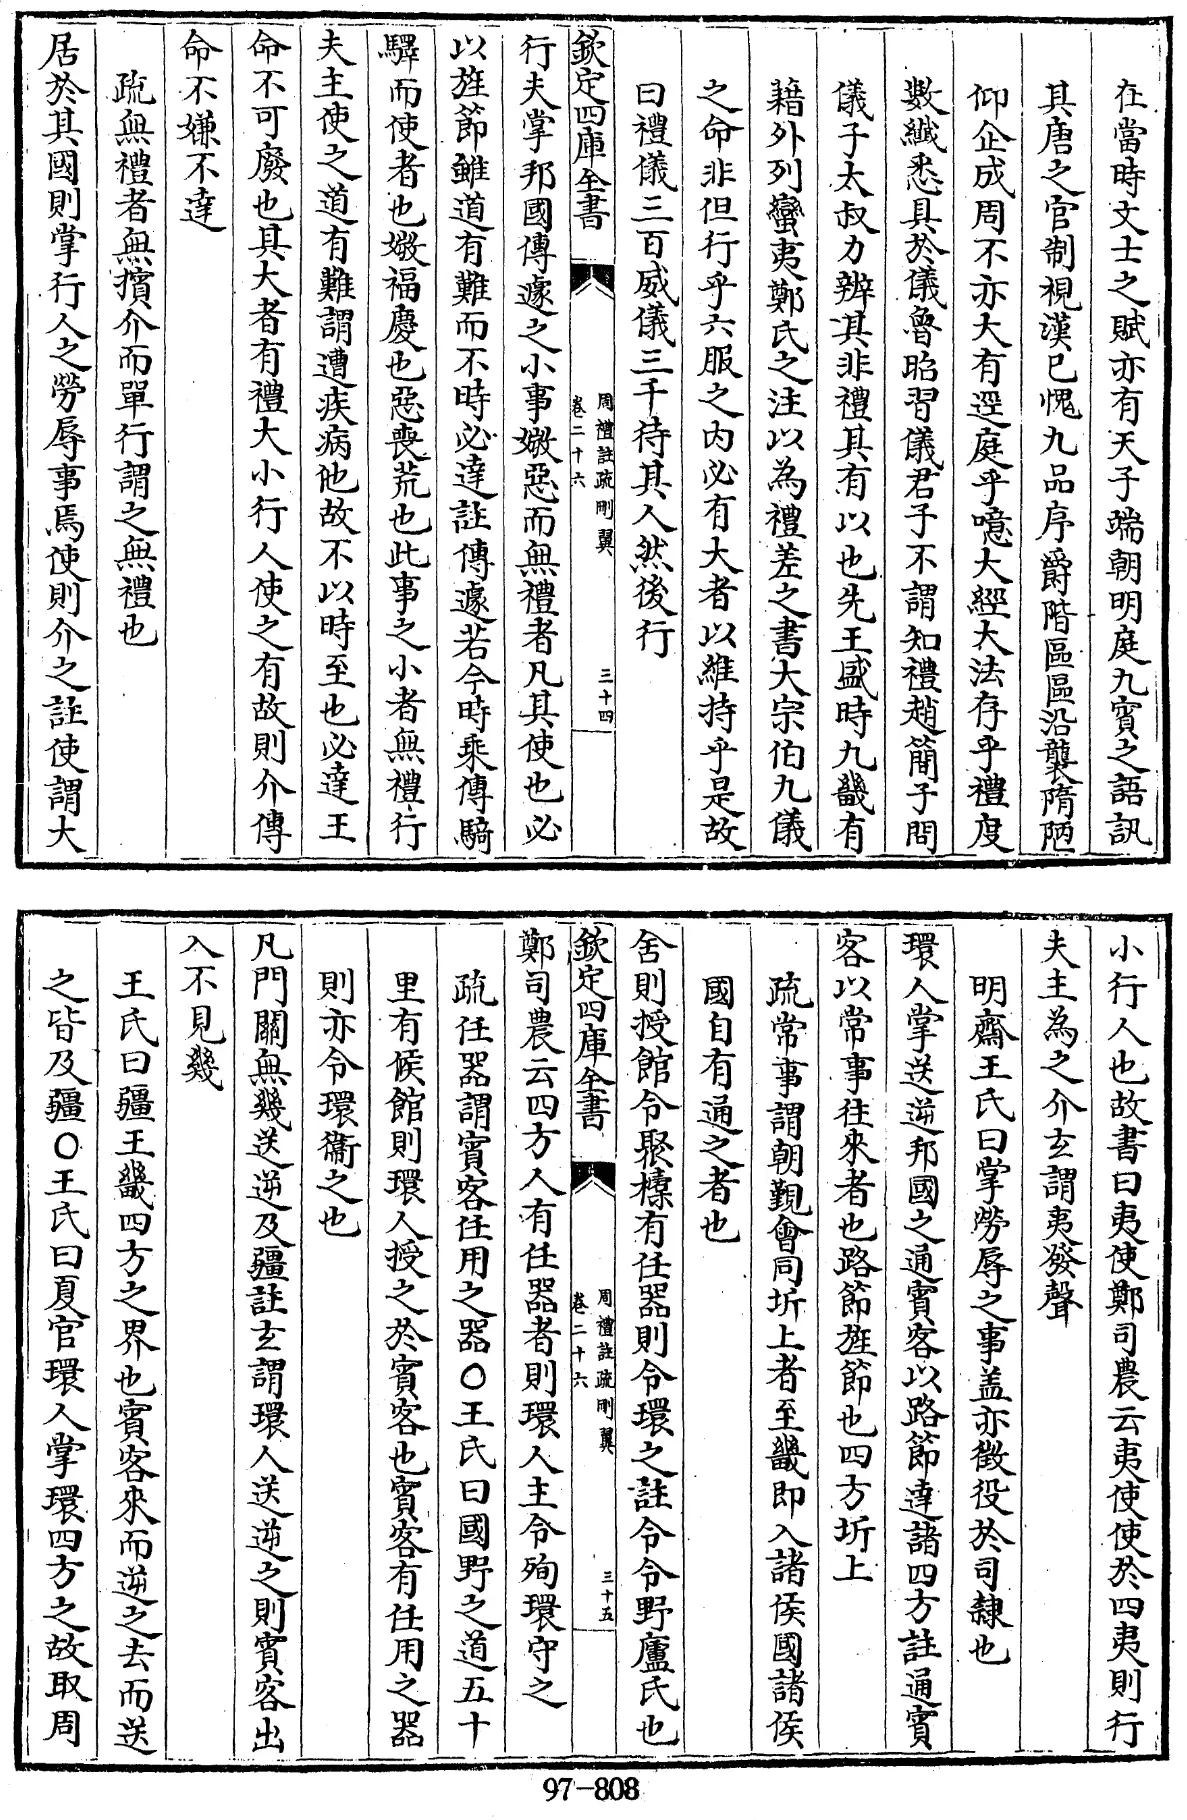 在當時文士之賦亦有天子端朝明庭九賓之語訊
其唐之官制視漢已愧九品序爵階區區沿襲隋陋
仰企成周不亦大有逕庭乎噫大經大法存乎禮度
數纎悉具於儀魯昭習儀君子不謂知禮趙簡子問
儀子太叔力辨其非禮其有以也先王盛時九畿有
藉外列蠻夷鄭氏之注以為禮差之書大宗伯九儀
之命非但行乎六服之内必有大者以維持乎是故
曰禮儀三百威儀三千待其人然後行
欽定四庫全書
周禮註疏刪翼
卷二十六
三十四
行夫掌邦國傳遽之小事媺惡而無禮者凡其使也必
以旌節雖道有難而不時必達註傳遽若今時乘傳騎
驛而使者也媺福慶也惡喪荒也此事之小者無禮行
夫主使之道有難謂遭疾病他故不以時至也必達王
命不可廢也其大者有禮大小行人使之有故則介傳
命不嫌不達
疏無禮者無擯介而單行謂之無禮也
居於其國則掌行人之勞辱事焉使則介之註使謂大
小行人也故書曰夷使鄭司農云夷使使於四夷則行
夫主為之介玄謂夷發聲
明齋王氏曰掌勞辱之事盖亦徵役於司隸也
環人掌送逆邦國之通賓客以路節達諸四方註通賓
客以常事往來者也路節旌節也四方圻上
疏常事謂朝覲會同圻上者至畿即入諸侯國諸侯
國自有通之者也
舍則授館令聚㯓有任器則令環之註令令野廬氏也
欽定四庫全書
周禮註疏刪翼
卷二十六
三十五
鄭司農云四方人有任器者則環人主令殉環守之
疏任器謂賓客任用之器○王氏曰國野之道五十
里有候館則環人授之於賓客也賓客有任用之器
則亦令環衞之也
凡門關無幾送逆及疆註玄謂環人送逆之則賓客出
入不見幾
王氏曰疆王畿四方之界也賓客來而逆之去而送
之皆及疆○王氏曰夏官環人掌環四方之故取周
97-808